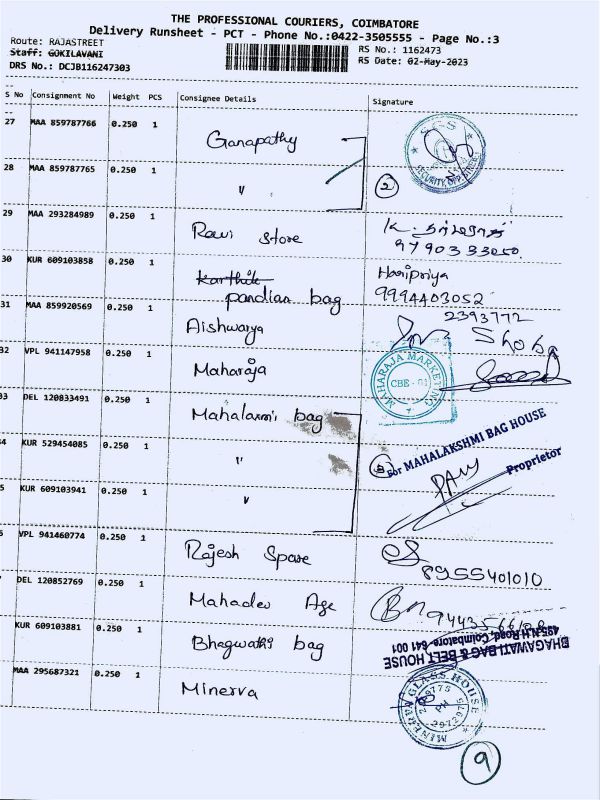 THE PROFESSIONAL COURIERS, COIMBATORE
Delivery Runsheet - PCT - Phone No.:0422-3505555 - Page No.:3
Route: RAJASTREET
RS No.: 1162473
Staff: GOKILAVANI
RS Date: 02-May-2023
DRS No.: DCJB116247303
S No Consignment No Weight PCS Consignee Details Signature
27 MAA 859787766 0.250 1 Ganapathy
28 MAA 859787765 0.250 1 " 2
SECURITY
29 MAA 293284989 0.250 1 Ravi store
9790333050
30 KUR 609103858 0.250 1 Karthik pandian bag Haripriya
9994403052
2393772
31 MAA 859920569 0.250 1 Aishwarya Shoba
32 VPL 941147958 0.250 1 Maharaja
MAHARAJA MARKETING
CBE - 01
33 DEL 120833491 0.250 1 Mahalaxmi bag
For MAHALAKSHMI BAG HOUSE
Proprietor
4 KUR 529454085 0.250 1 " 3
5 KUR 609103941 0.250 1 "
6 VPL 941460774 0.250 1 Rajesh Spare
8955401010
7 DEL 120852769 0.250 1 Mahadev Age
KUR 609103881 0.250 1 Bhagwathi bag
BHAGAWATI BAG & BELT HOUSE
495, N.H.Road, Coimbatore - 641 001
MAA 295687321 0.250 1 Minerva
MINERVA GLASS HOUSE
9